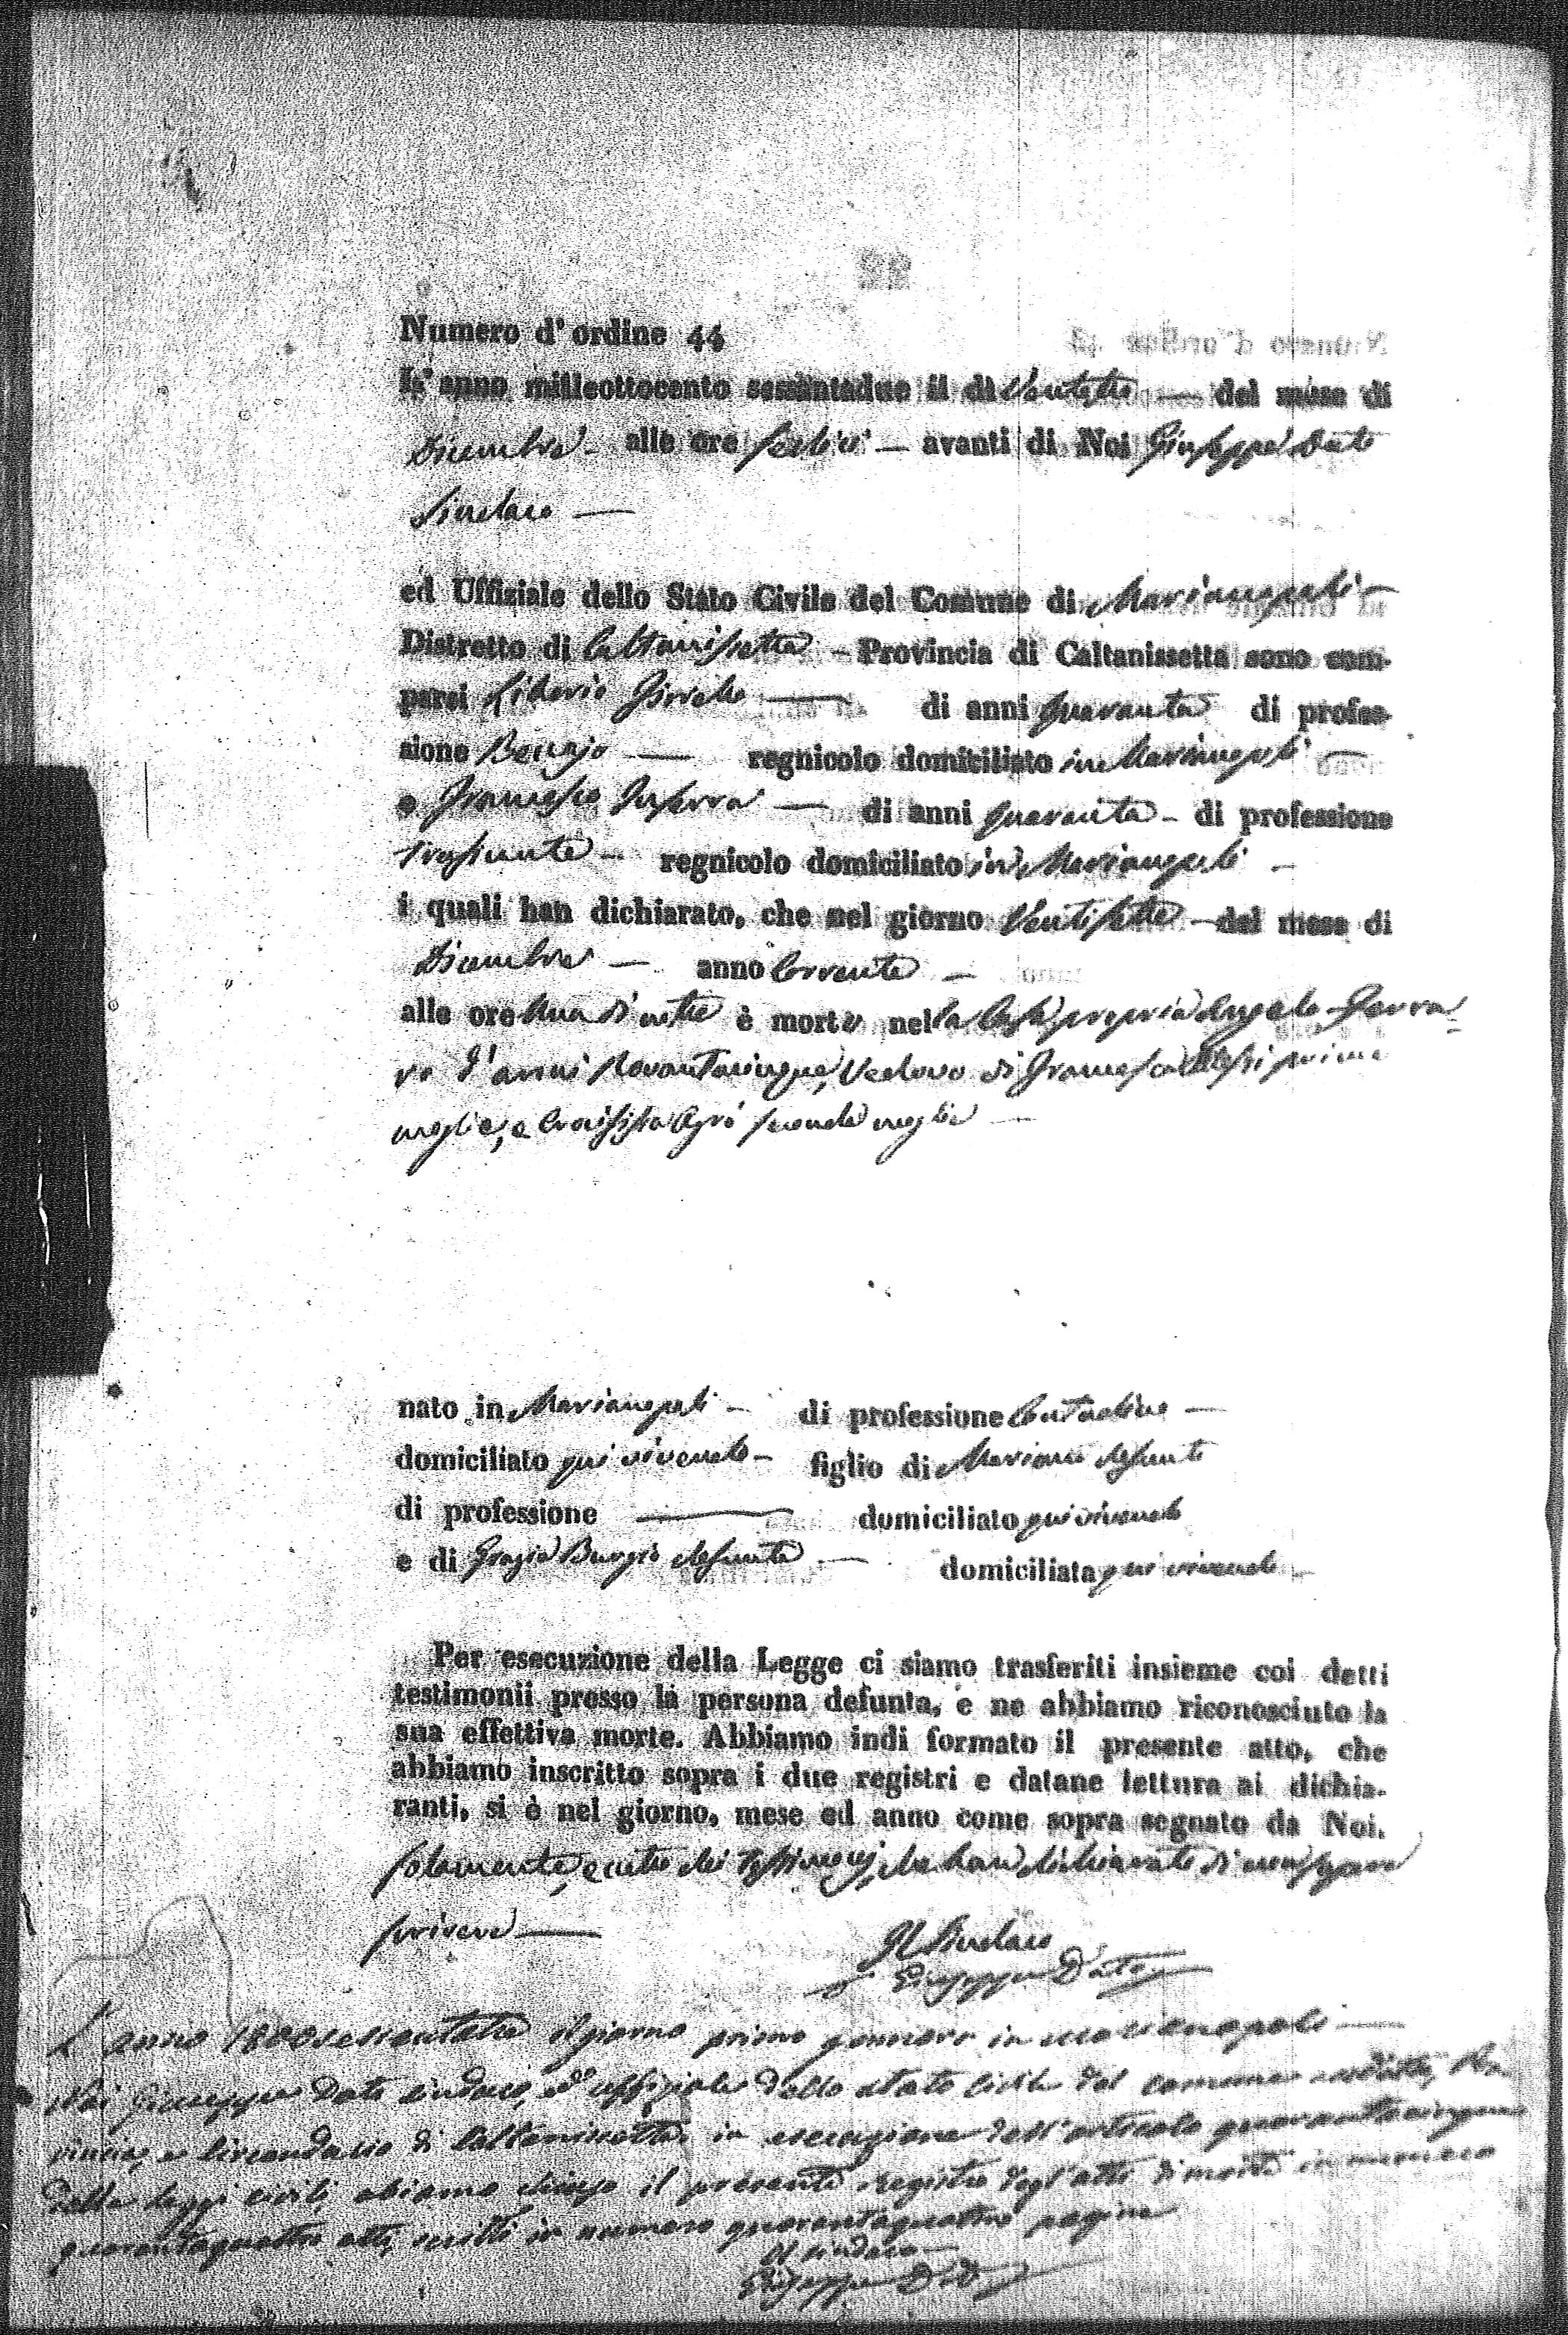 Numero d'ordine 44
L'anno milleottocento sessantadue il dì — del mese di
Dicembre — alle ore sedici — avanti di Noi Giuseppe Dato
Sindaco —
ed Uffiziale dello Stato Civile del Comune di Marianopoli —
Distretto di Caltanissetta — Provincia di Caltanissetta sono com-
parsi Liberio — di anni quaranta di profes-
sione — regnicolo domiciliato in Marianopoli —
e Francesco — di anni quaranta — di professione
— regnicolo domiciliato in Marianopoli —
i quali han dichiarato, che nel giorno Ventisette — del mese di
Dicembre — anno Corrente —
alle ore una di notte è morto nella Casa propria Angelo Ferra-
ro d'anni Novantacinque, Vedovo di Francesca Alessi prima
moglie, e Crocifissa Agrò seconda moglie —
nato in Marianopoli — di professione Contadino —
domiciliato qui vivendo — figlio di Mariano defunto
di professione — domiciliato qui vivendo
e di Grazia Burgio defunta — domiciliata qui vivendo —
Per esecuzione della Legge ci siamo trasferiti insieme coi detti
testimonii presso la persona defunta, e ne abbiamo riconosciuto la
sua effettiva morte. Abbiamo indi formato il presente atto, che
abbiamo inscritto sopra i due registri e datane lettura ai dichia-
ranti, si è nel giorno, mese ed anno come sopra segnato da Noi.
solamente, e dei Testimonj, che han dichiarato di non sapere
scrivere —
Il Sindaco
Giuseppe Dato
L'anno 1800sessantatre il giorno primo gennaro in Marianopoli —
Noi Giuseppe Dato sindaco, ed uffiziale dello stato civile del comune anzidetto, Pro-
vincia, e Circondario di Caltanissetta in esecuzione dell'articolo quarantacinque
delle Leggi civili abiamo chiuso il presente registro degl'atti di morte in numero
quarantaquattro atti, scritti in numero quarantaquattro pagine
Il sindaco
Giuseppe Dato